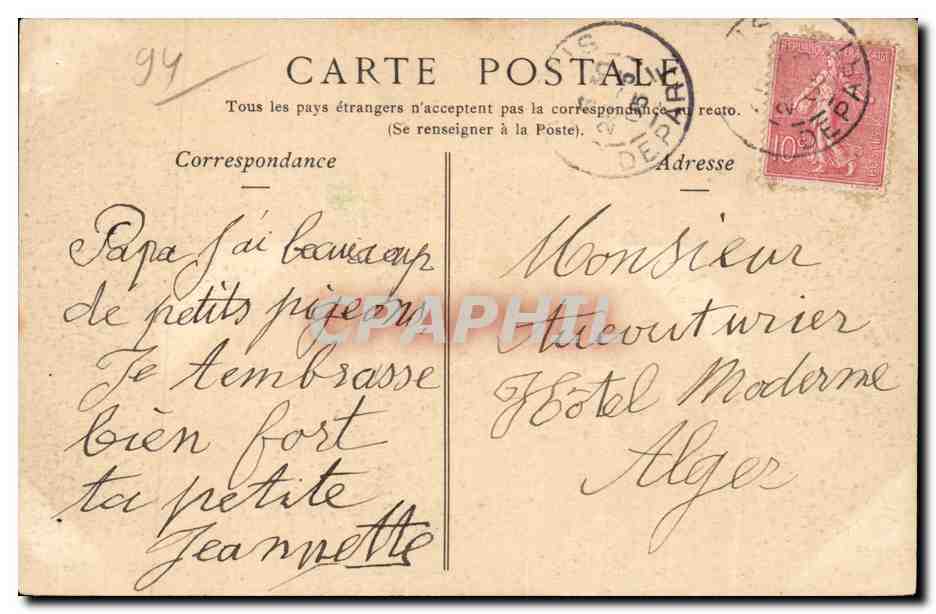 94
CARTE POSTALE
Tous les pays étrangers n'acceptent pas la correspondance au recto.
(Se renseigner à la Poste).
Correspondance
Papa j'ai beaucoup
de petits pigeons
Je t'embrasse
bien fort
ta petite
Jeannette
Adresse
Monsieur
Aucouturier
Hôtel Moderne
Alger
DEPART
10
DEPART
CPAPHIL